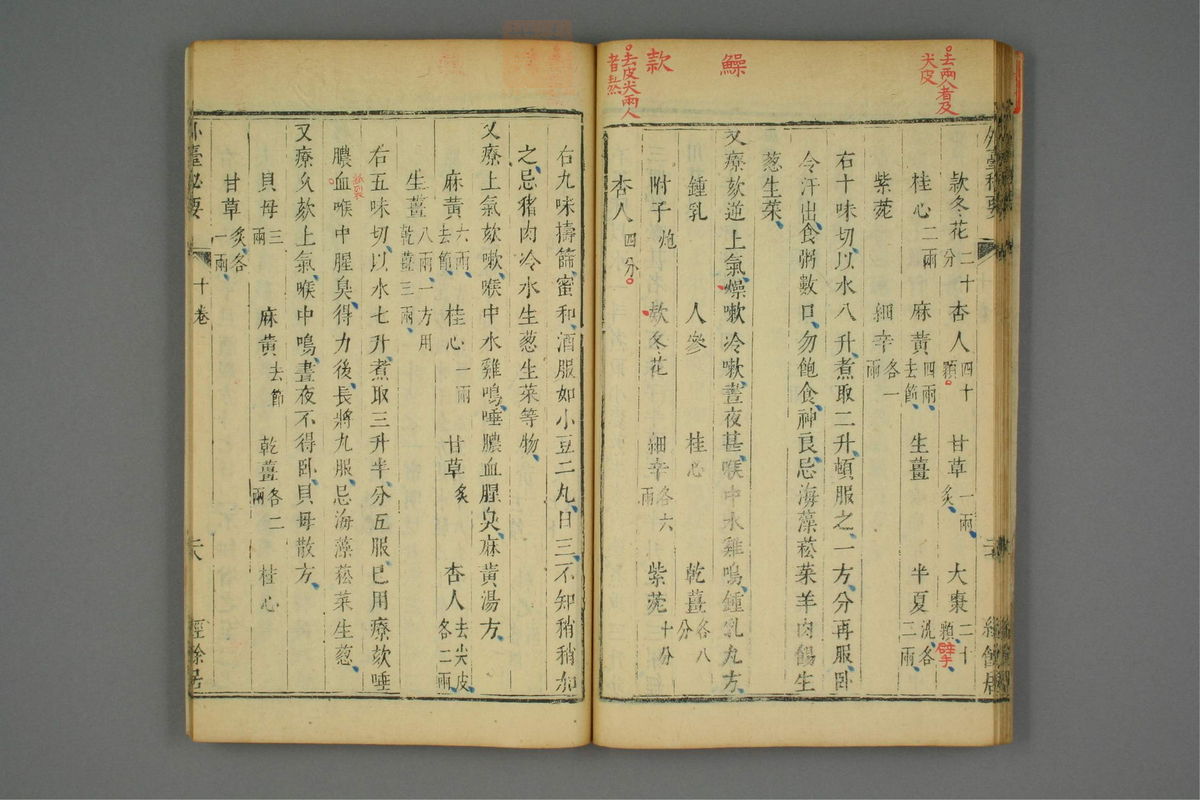 去兩人者及
尖皮
鱢
款
去皮尖兩人
者熬
外臺秘要
款冬花二十分 杏人四十顆 甘草一兩炙 大棗二十顆 擘
桂心二兩 麻黃四兩去節 生薑 半夏洗各三兩
紫菀 細辛各一兩
右十味切以水八升煮取二升頓服之一方分再服臥
令汗出食粥數口勿飽食神良忌海藻菘菜羊肉餳生
葱生菜
又療欬逆上氣燥嗽冷嗽晝夜甚喉中水雞鳴鍾乳丸方
鍾乳 人參 桂心 乾薑各八分
附子炮 款冬花 細辛各六兩 紫菀十分
杏人四分
右九味擣篩蜜和酒服如小豆二丸日三不知稍稍加
之忌猪肉冷水生葱生菜等物
又療上氣欬嗽喉中水雞鳴唾膿血腥臭麻黃湯方
麻黃六兩去節 桂心一兩 甘草炙 杏人去尖皮各二兩
生薑八兩一方用乾薑三兩
右五味切以水七升煮取三升半分五服已用療欬唾
膿血喉中腥臭得力後長將丸服忌海藻菘菜生葱
又療久欬上氣喉中鳴晝夜不得臥貝母散方
貝母三兩 麻黃去節 乾薑各二兩 桂心
甘草炙各一兩
外臺秘要 十卷 經餘居